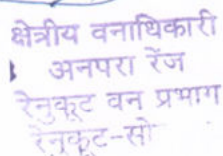 क्षेत्रीय वनाधिकारी
अनपरा रेंज
रेनुकूट वन प्रभाग
रेनुकूट-सो